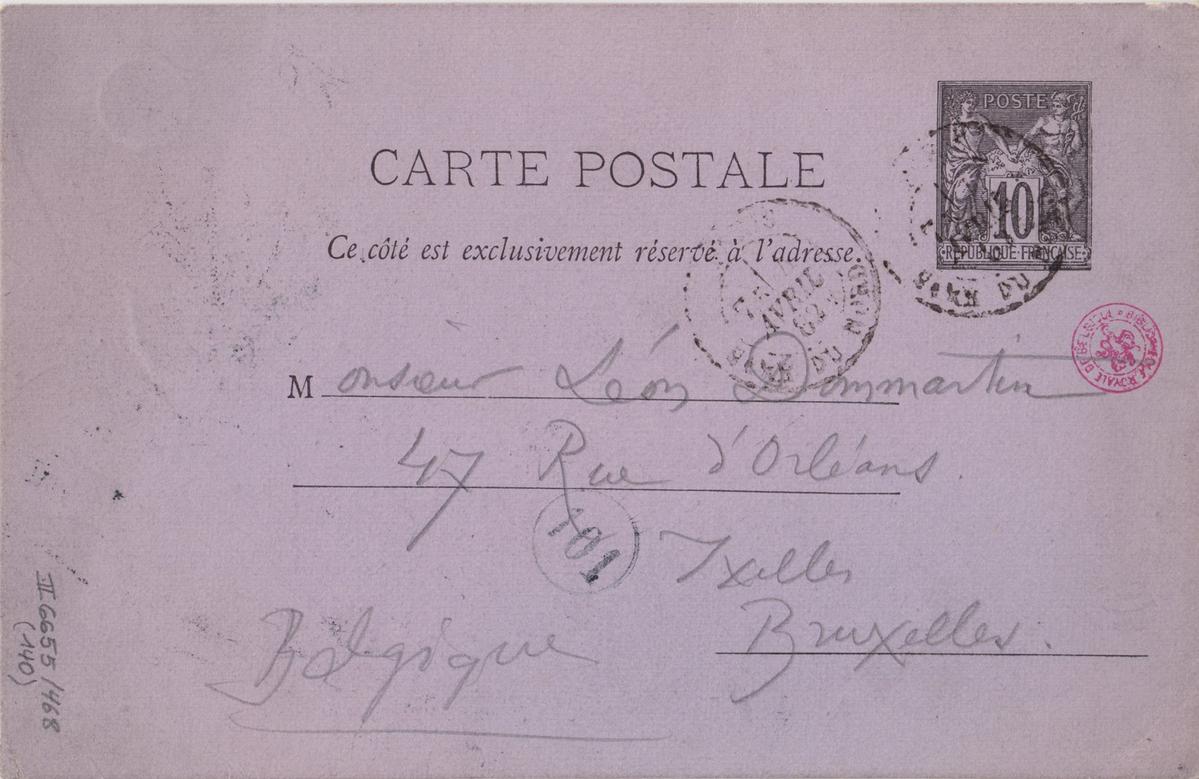 POSTE
10
REPUBLIQUE FRANÇAISE
CARTE POSTALE
Ce côté est exclusivement réservé à l'adresse.
AVRIL
BIBLIOTHÈQUE ROYALE DE BELGIQUE
Monsieur Léon Dommartin
47 Rue d'Orléans
101
Ixelles
Bruxelles.
Belgique
II 6655/468
(140)